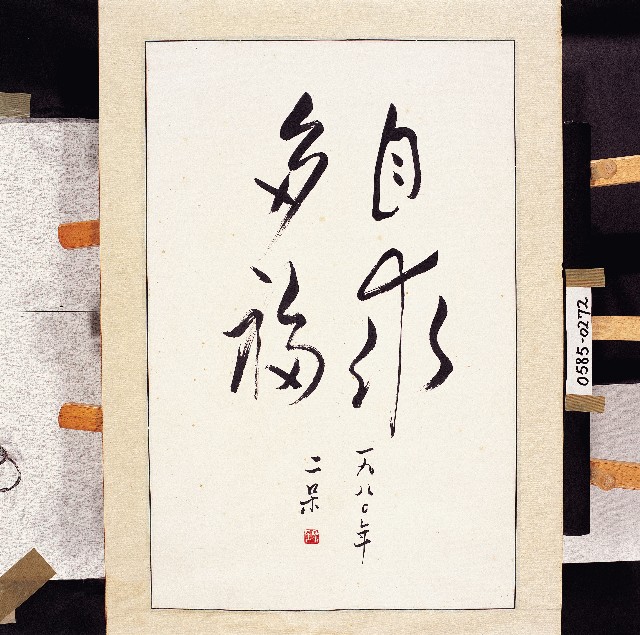 自求
多福
一九八〇年
二呆
0585-0272